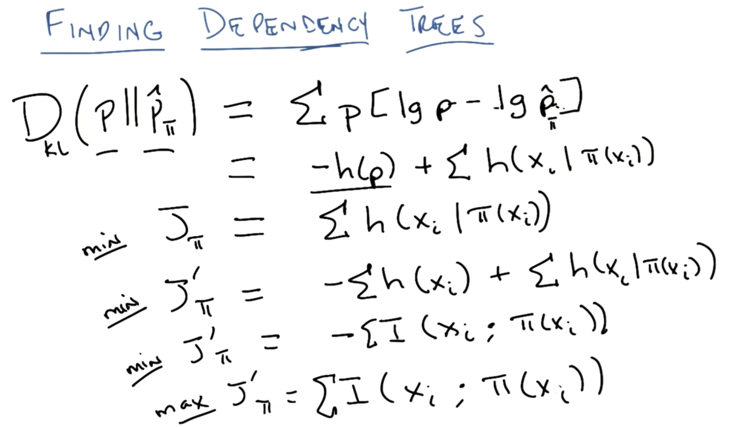 FINDING DEPENDENCY TREES
D_KL(p||p̂_π) = Σ p[lg p - lg p̂_π]
= -h(p) + Σ h(x_i|π(x_i))
min J_π = Σ h(x_i|π(x_i))
min J'_π = -Σ h(x_i) + Σ h(x_i|π(x_i))
min J'_π = -Σ I(x_i; π(x_i))
max J'_π = Σ I(x_i; π(x_i))